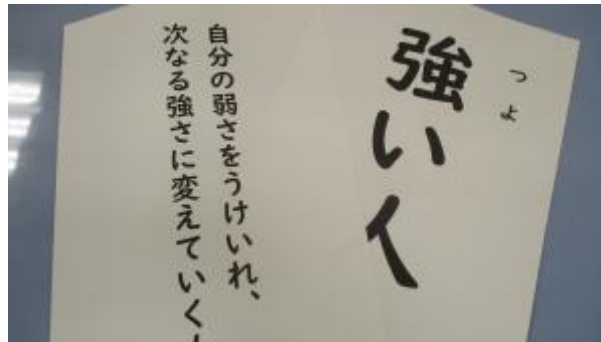 つよ
強い人
自分の弱さをうけいれ、
次なる強さに変えていく